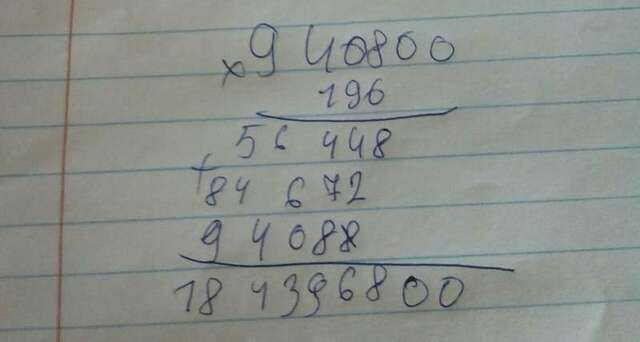 × 940800
196
56448
+ 84672
94088
184396800